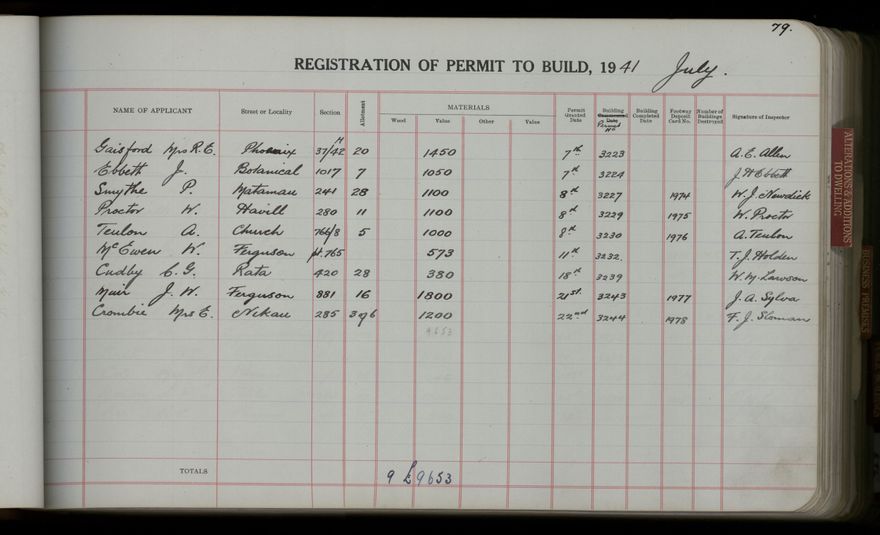 79.
REGISTRATION OF PERMIT TO BUILD, 1941 July.
NAME OF APPLICANT Street or Locality Section Allotment MATERIALS Wood Value Other Value Permit Granted Date Building Commenced Date Permit No Building Completed Date Footway Deposit Card No. Number of Buildings Destroyed Signature of Inspector
Gaisford Mrs R. E. Phoenix 37/42 20 1450 7th 3223 A. E. Allen
Ebbett J. Botanical 1017 7 1050 7th 3224 J. W Ebbett
Smythe P. Matamau 241 28 1100 8th 3227 1974 W. J. Newdick
Proctor W. Havill 280 11 1100 8th 3229 1975 W. Proctor
Teulon A. Church 766/8 5 1000 8th 3230 1976 A. Teulon
McEwen W. Ferguson pt. 765 573 11th 3232 T. J. Holden
Cudby C. G. Rata 420 28 380 18th 3239 W. M. Lawson
Muir J. W. Ferguson 881 16 1800 21st. 3243 1977 J. A. Sylva
Crombie Mrs E. Nikau 285 3 of 6 1200 22nd 3244 1978 F. J. Sloman
9653
TOTALS 9 £9653
ALTERATIONS & ADDITIONS TO DWELLING
BUSINESS PREMISES